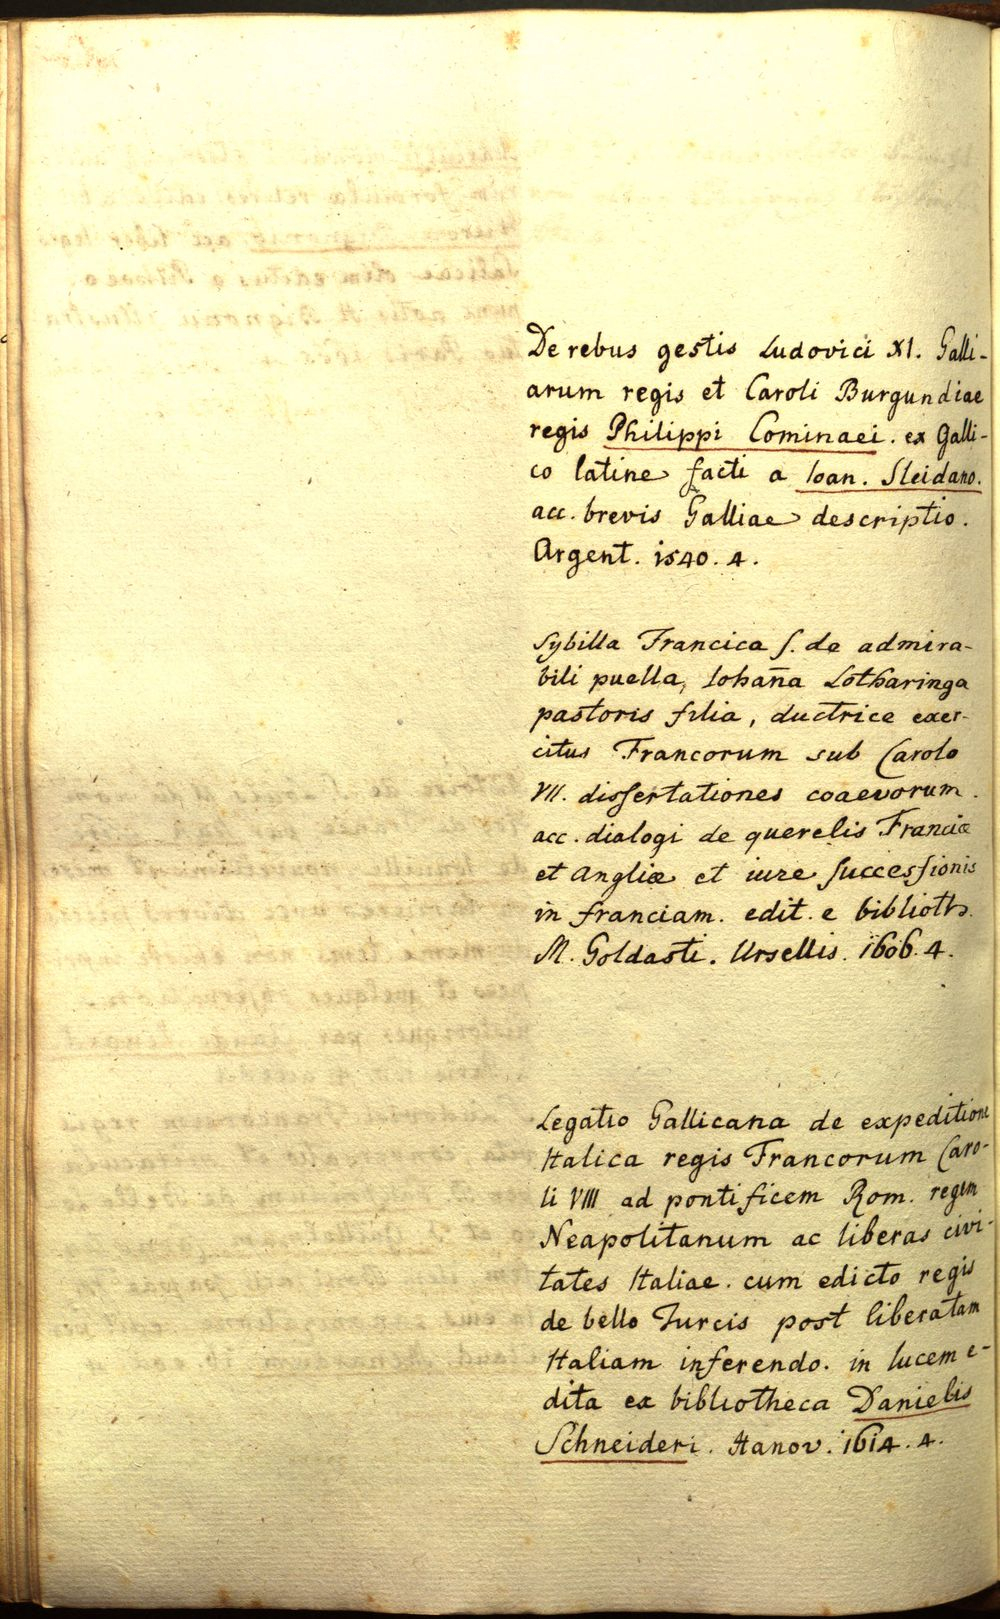 De rebus gestis Ludovici XI. Galli-
arum regis et Caroli Burgundiae
regis Philippi Cominaei. ex Galli-
co latine facti a Ioan. Sleidano.
acc. brevis Galliae descriptio.
Argent. 1540. 4.
Sybilla Francica s. de admira-
bili puella, Iohan̄a Lotharinga
pastoris filia, ductrice exer-
citus Francorum sub Carolo
VII. dissertationes coaevorum.
acc. dialogi de querelis Franciæ
et Angliæ et iure successionis
in franciam. edit. e biblioth.
M. Goldasti. Ursellis. 1606. 4.
Legatio Gallicana de expeditione
Italica regis Francorum Caro-
li VIII ad pontificem Rom. regem
Neapolitanum ac liberas civi-
tates Italiae. cum edicto regis
de bello Turcis post liberatam
Italiam inferendo. in lucem e-
dita ex bibliotheca Danielis
Schneideri. Hanov. 1614. 4.